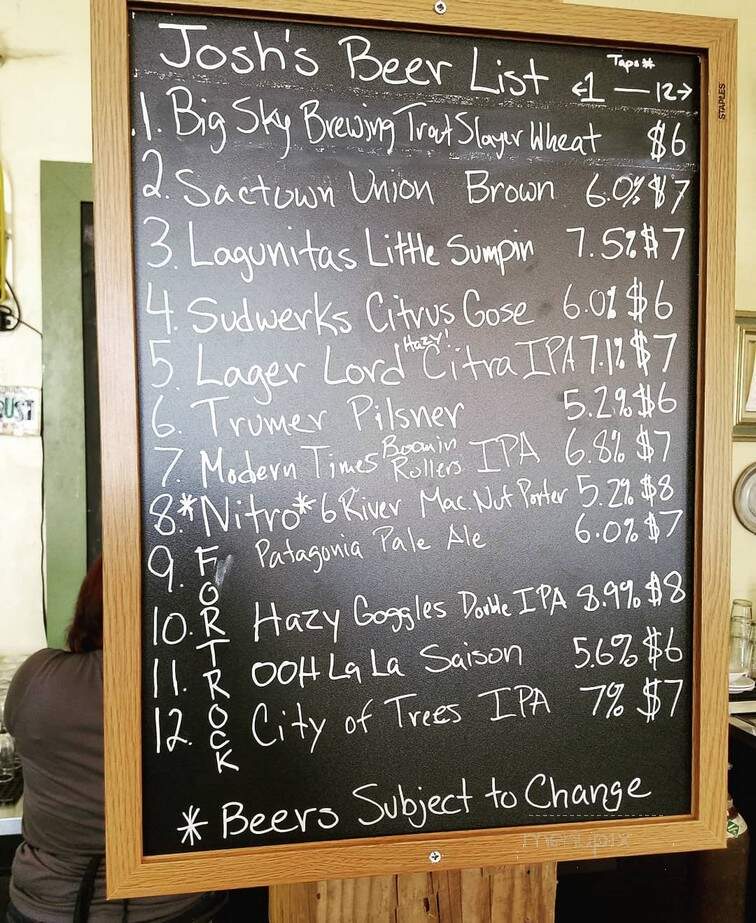 Josh's Beer List
Taps #
←1 — 12→
1. Big Sky Brewing Trout Slayer Wheat $6
2. Sactown Union Brown 6.0% $7
3. Lagunitas Little Sumpin 7.5% $7
4. Sudwerks Citrus Gose 6.0% $6
5. Lager Lord "Hazy!" Citra IPA 7.1% $7
6. Trumer Pilsner 5.2% $6
7. Modern Times Boomin Rollers IPA 6.8% $7
8. *Nitro* 6 River Mac. Nut Porter 5.2% $8
9. Patagonia Pale Ale 6.0% $7
10. Hazy Goggles Double IPA 8.9% $8
11. OOH La La Saison 5.6% $6
12. City of Trees IPA 7% $7
FORT ROCK
* Beers Subject to Change
STAPLES
UST
menupix